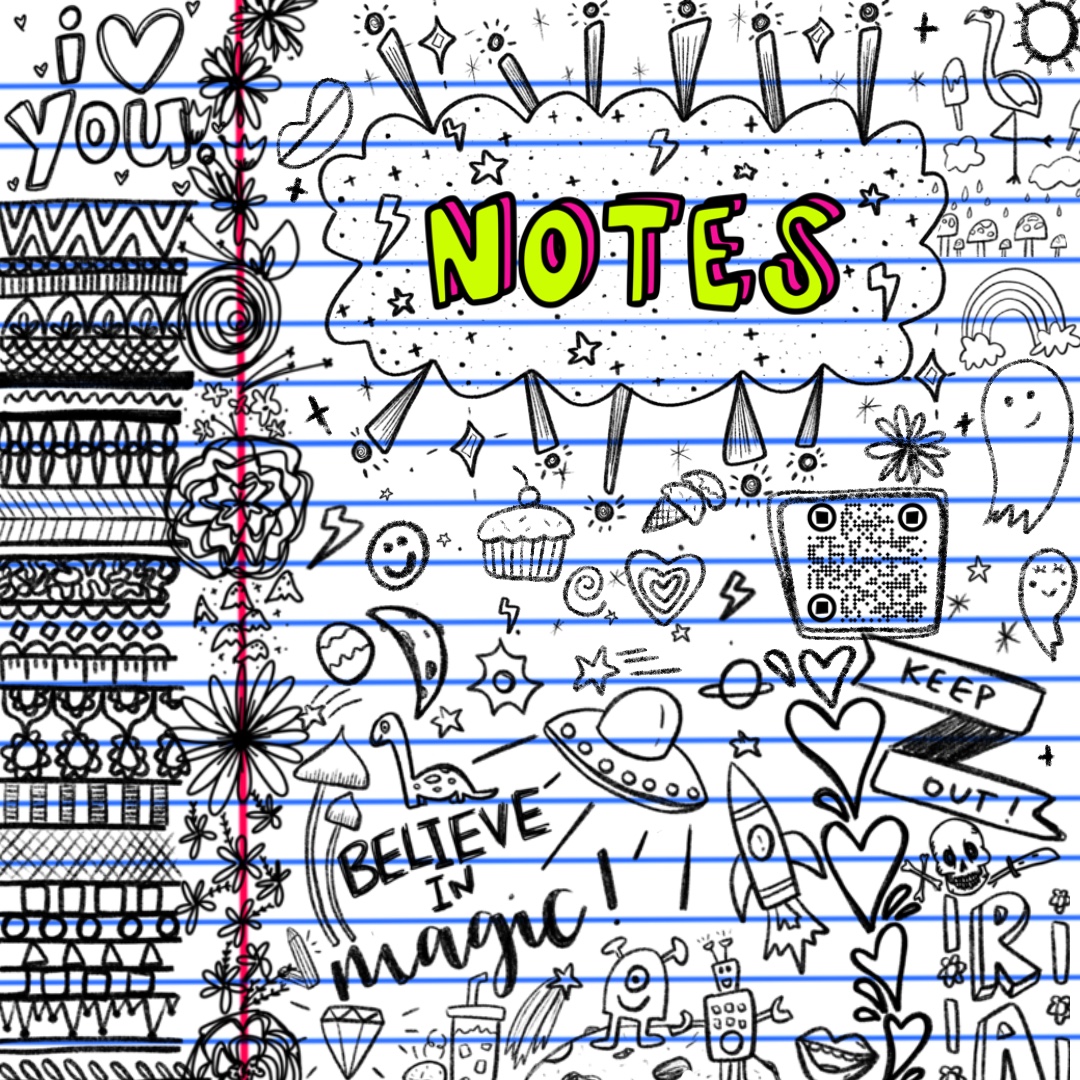 i ♡
you.
NOTES
KEEP
OUT!
BELIEVE
IN
magic